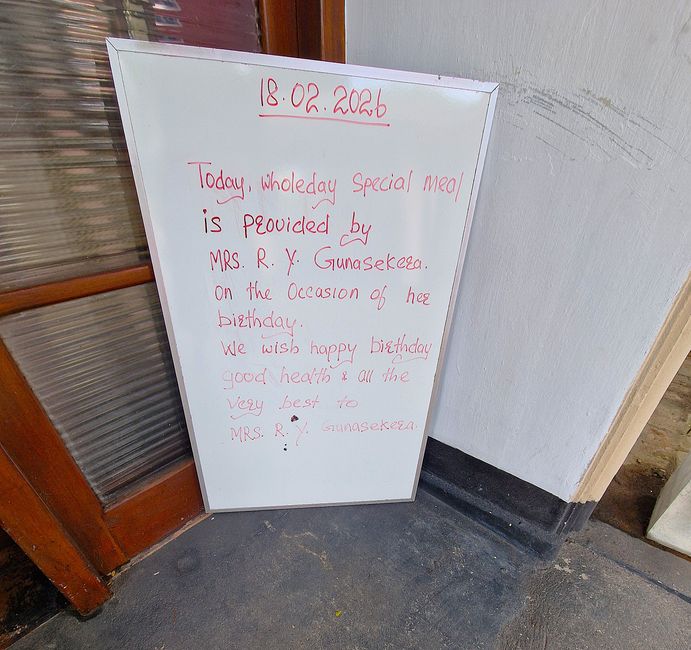 18.02.2026
Today, wholeday special meal
is provided by
MRS. R. Y. Gunasekera.
on the occasion of her
birthday.
We wish happy birthday
good health & all the
very best to
MRS. R. Y. Gunasekera.